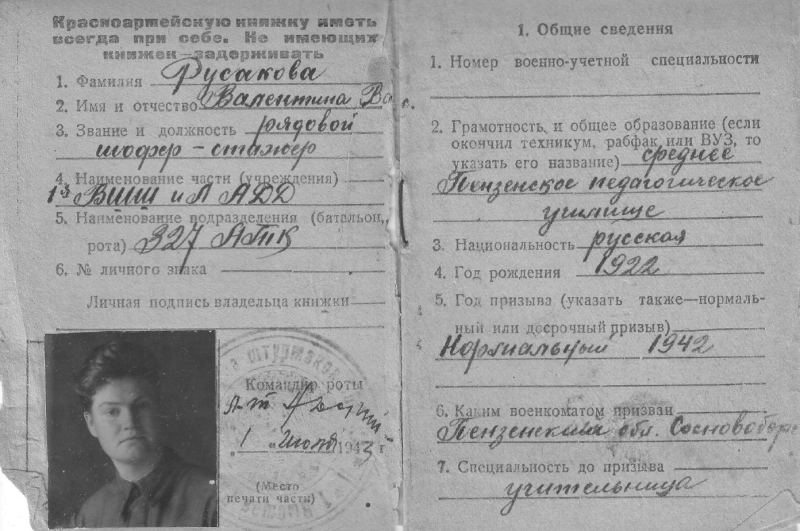 Красноартейскую книжку иметь
всегда при себе. Не имеющих
книжек—задерживать
1. Фамилия Русакова
2. Имя и отчество Валентина Вас.
3. Звание и должность рядовой
шофер – стажер
4. Наименование части (учреждения)
1ая ВШШ и Л АДД
5. Наименование подразделения (батальон,
рота) 327 АТПК
6. № личного знака
Личная подпись владельца книжки
Командир роты
1 " Июля 1943 г
(Место
печати части)
1. Общие сведения
1. Номер военно-учетной специальности
2. Грамотность и общее образование (если
окончил техникум, рабфак или ВУЗ, то
указать его название) среднее
Пензенское педагогическое
училище
3. Национальность русская
4. Год рождения 1922
5. Год призыва (указать также—нормаль-
ный или досрочный призыв)
Нормальный 1942
6. Каким военкоматом призван
Пензенским обл. Сосновоборс
7. Специальность до призыва
учительница